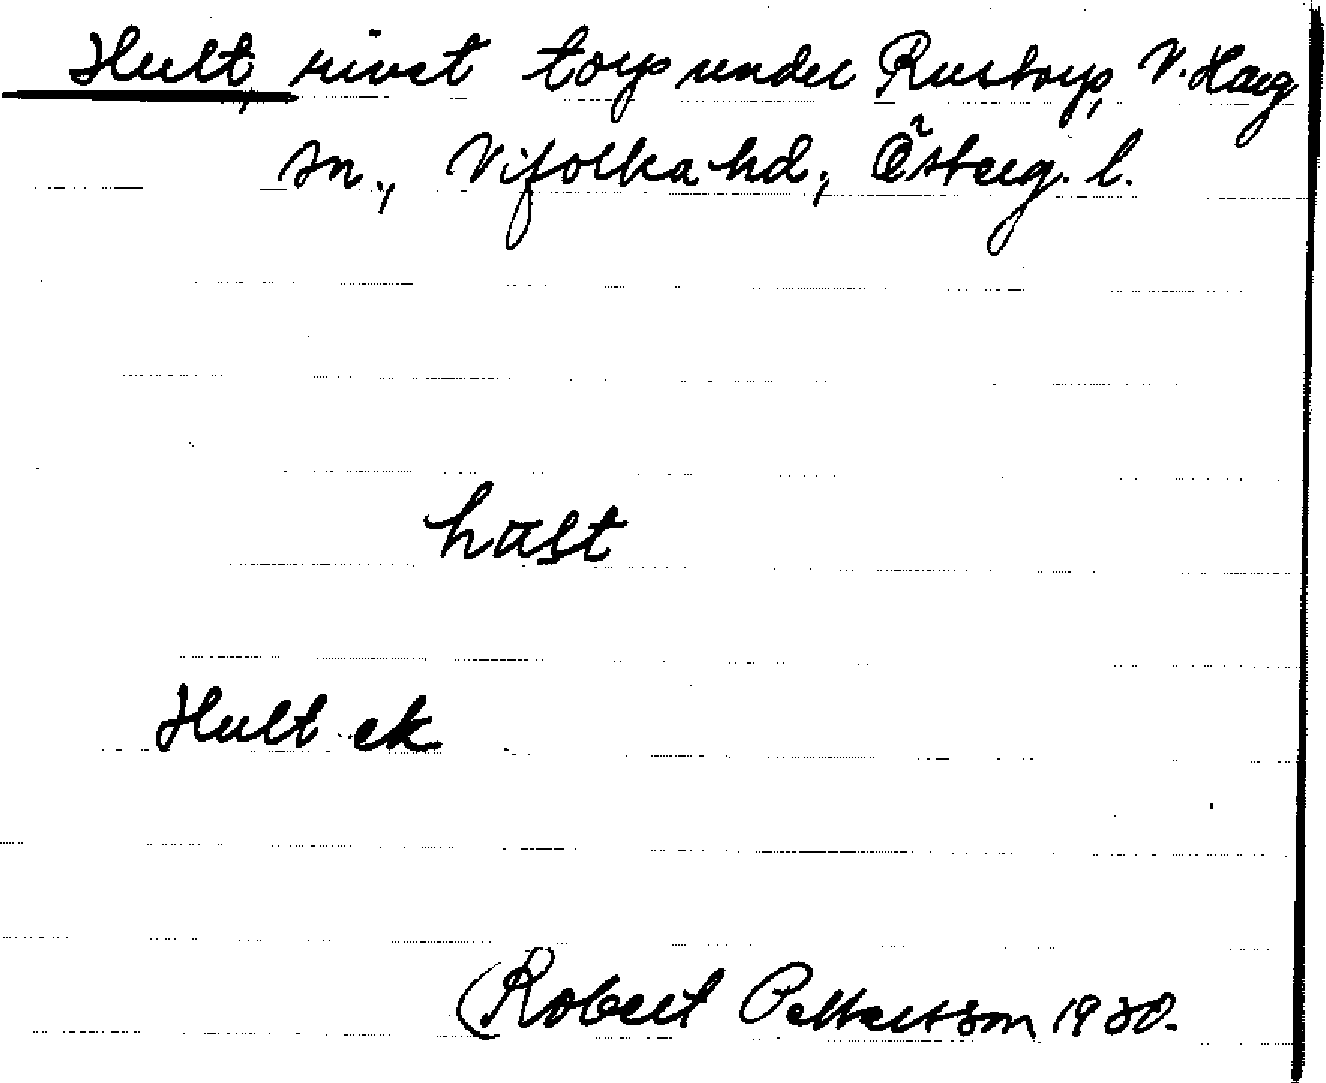 Hult, rivet torp under Rustorp, V. Harg
sn., Vifolka hd., Österg. l.
hult
Hult ek
Robert Pettersson 1930.